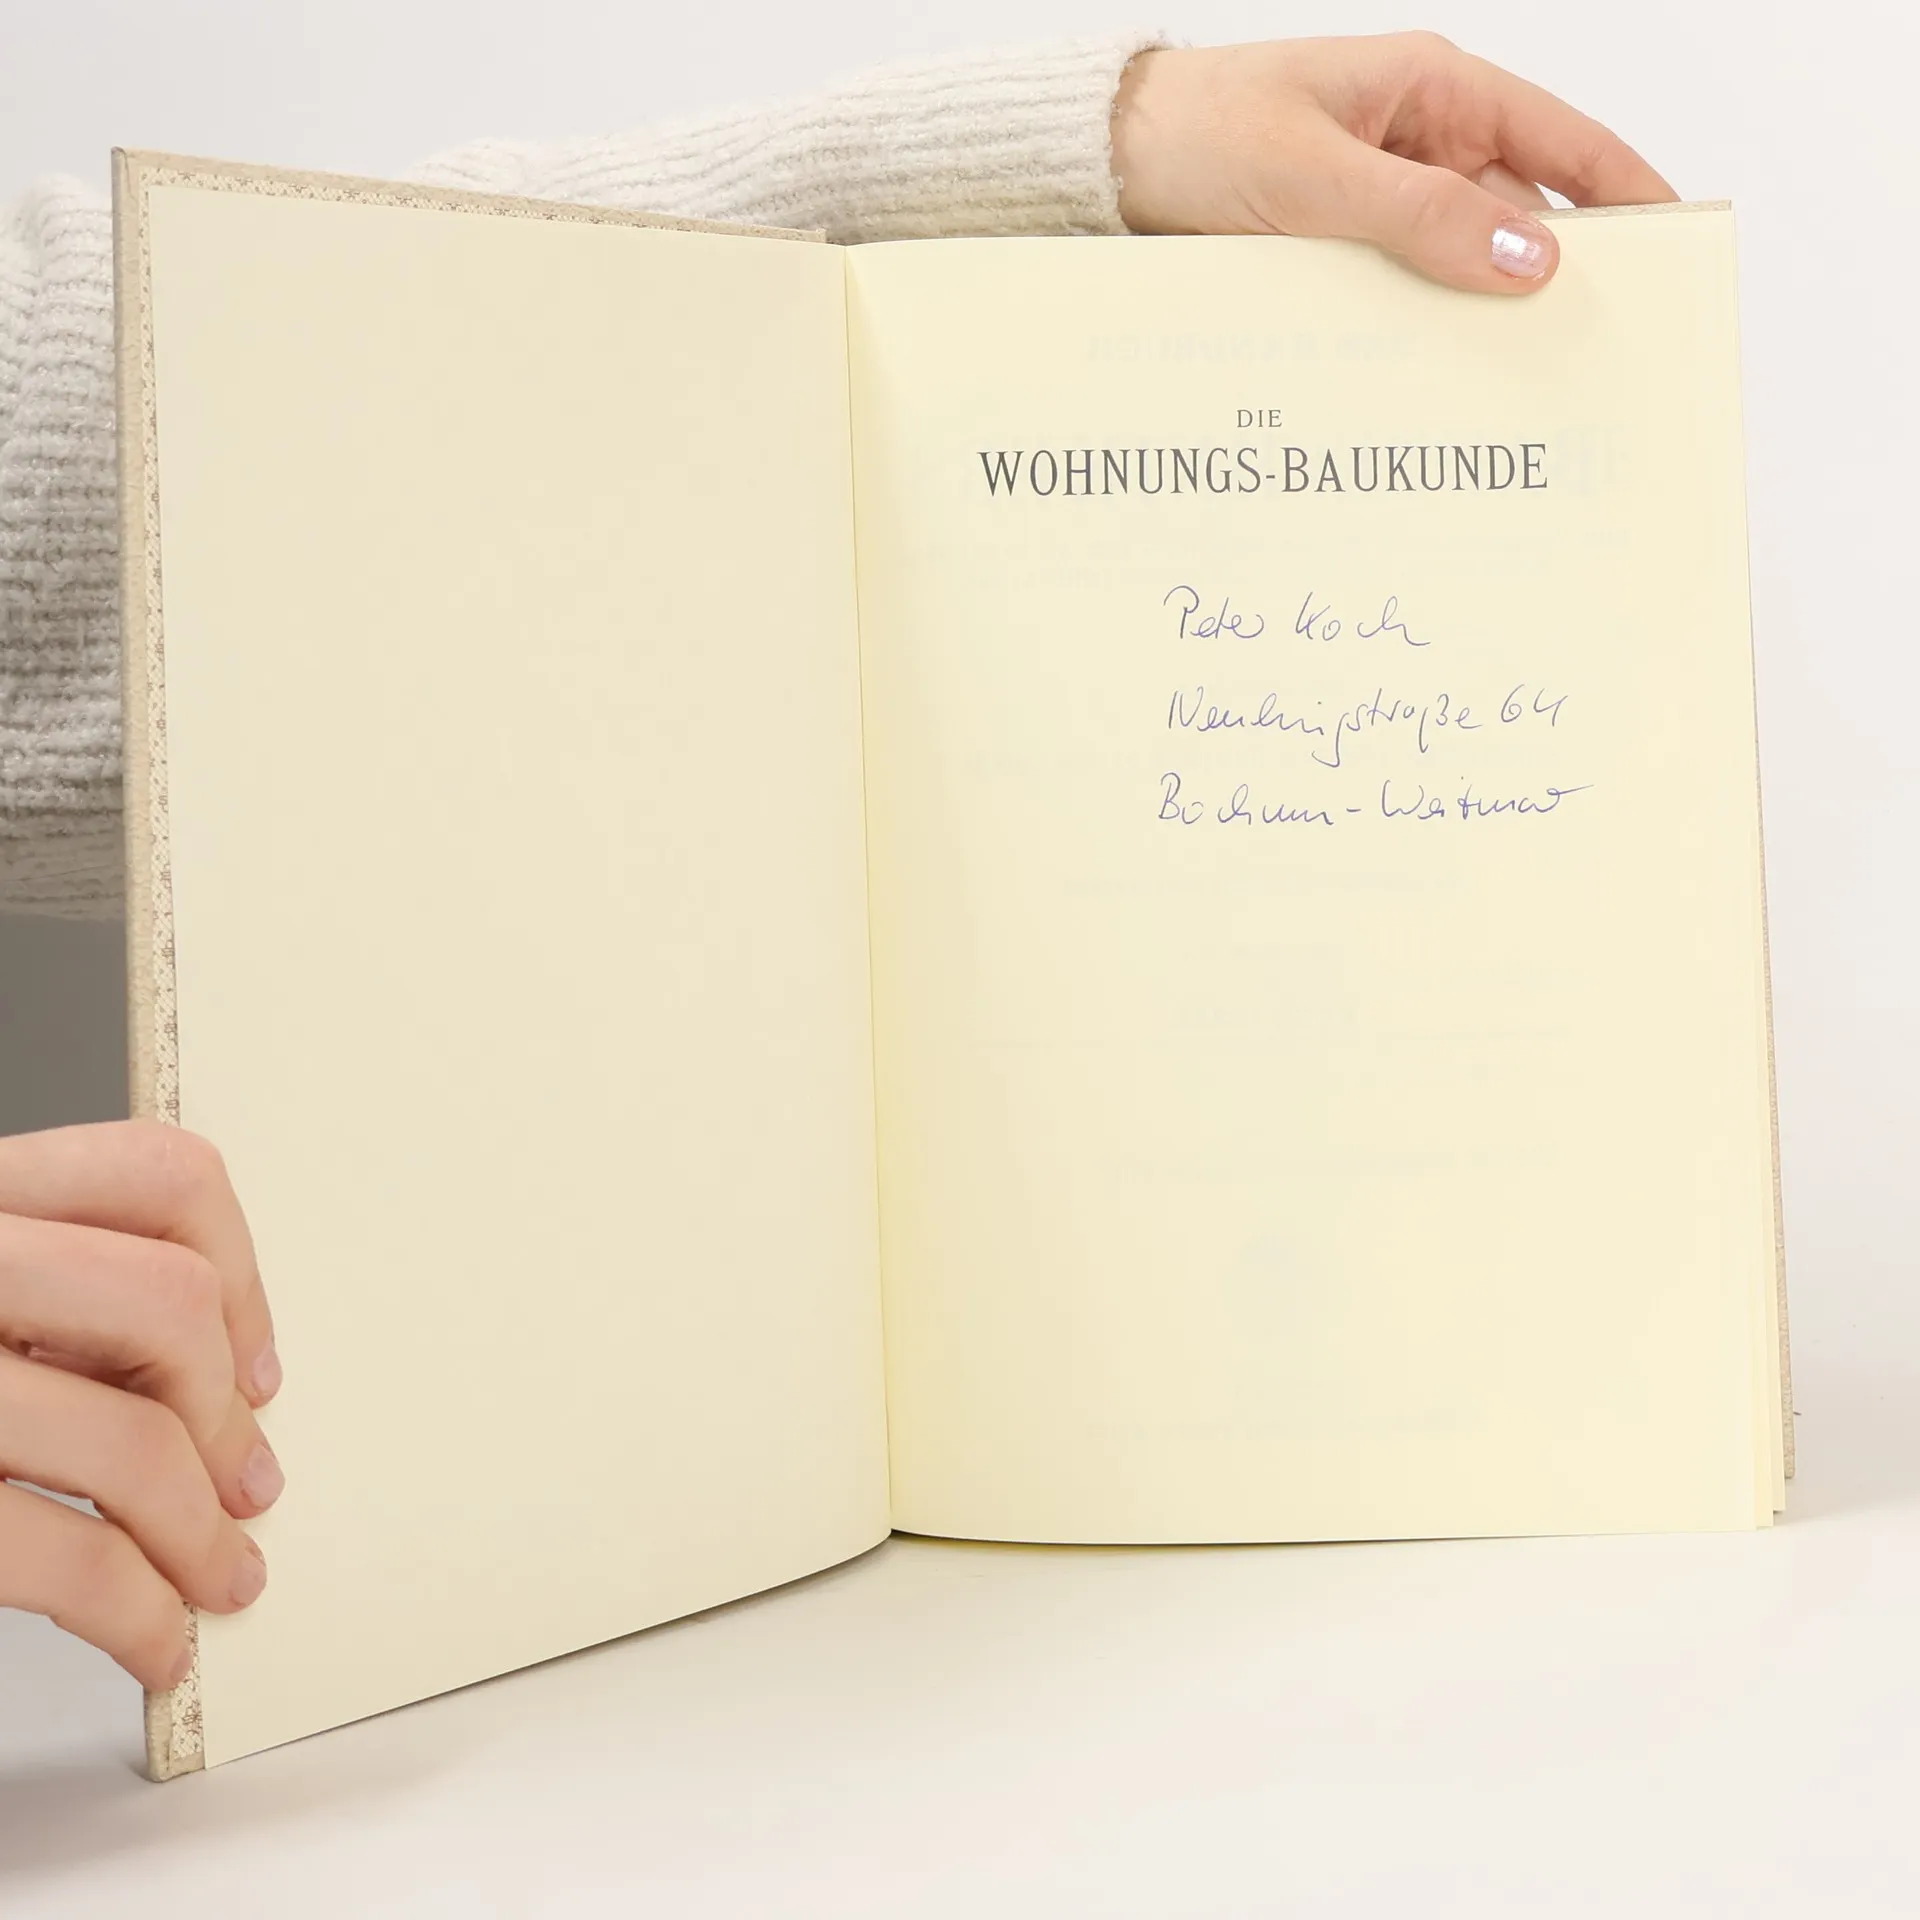 DIE
WOHNUNGS-BAUKUNDE
Peter Koch
Neulingstraße 64
Bochum-Weitmar